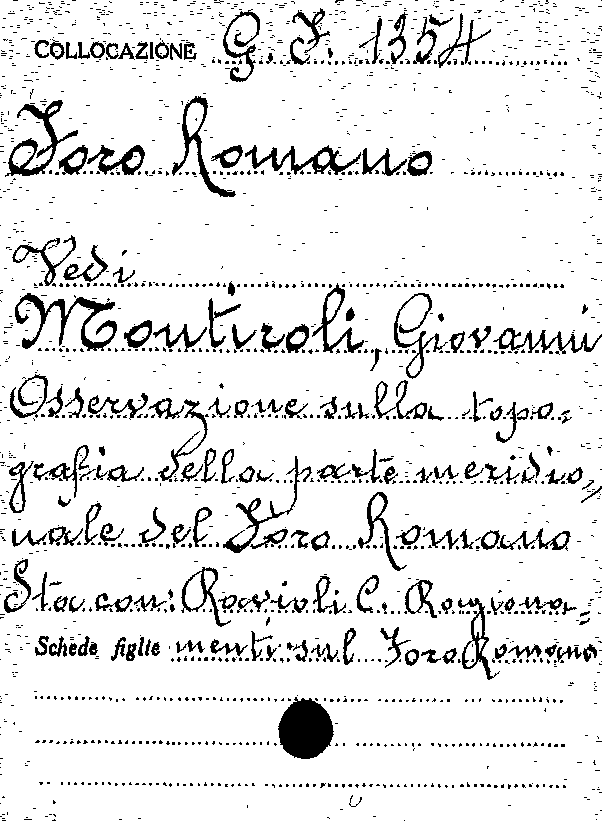 COLLOCAZIONE G. F. 1354
Foro Romano
Vedi
Montiroli, Giovanni
Osservazione sulla topo=
grafia della parte meridio=
nale del Foro Romano
Sta con: Ravioli C. Ragiona=
Schede figlie menti sul Foro Romano